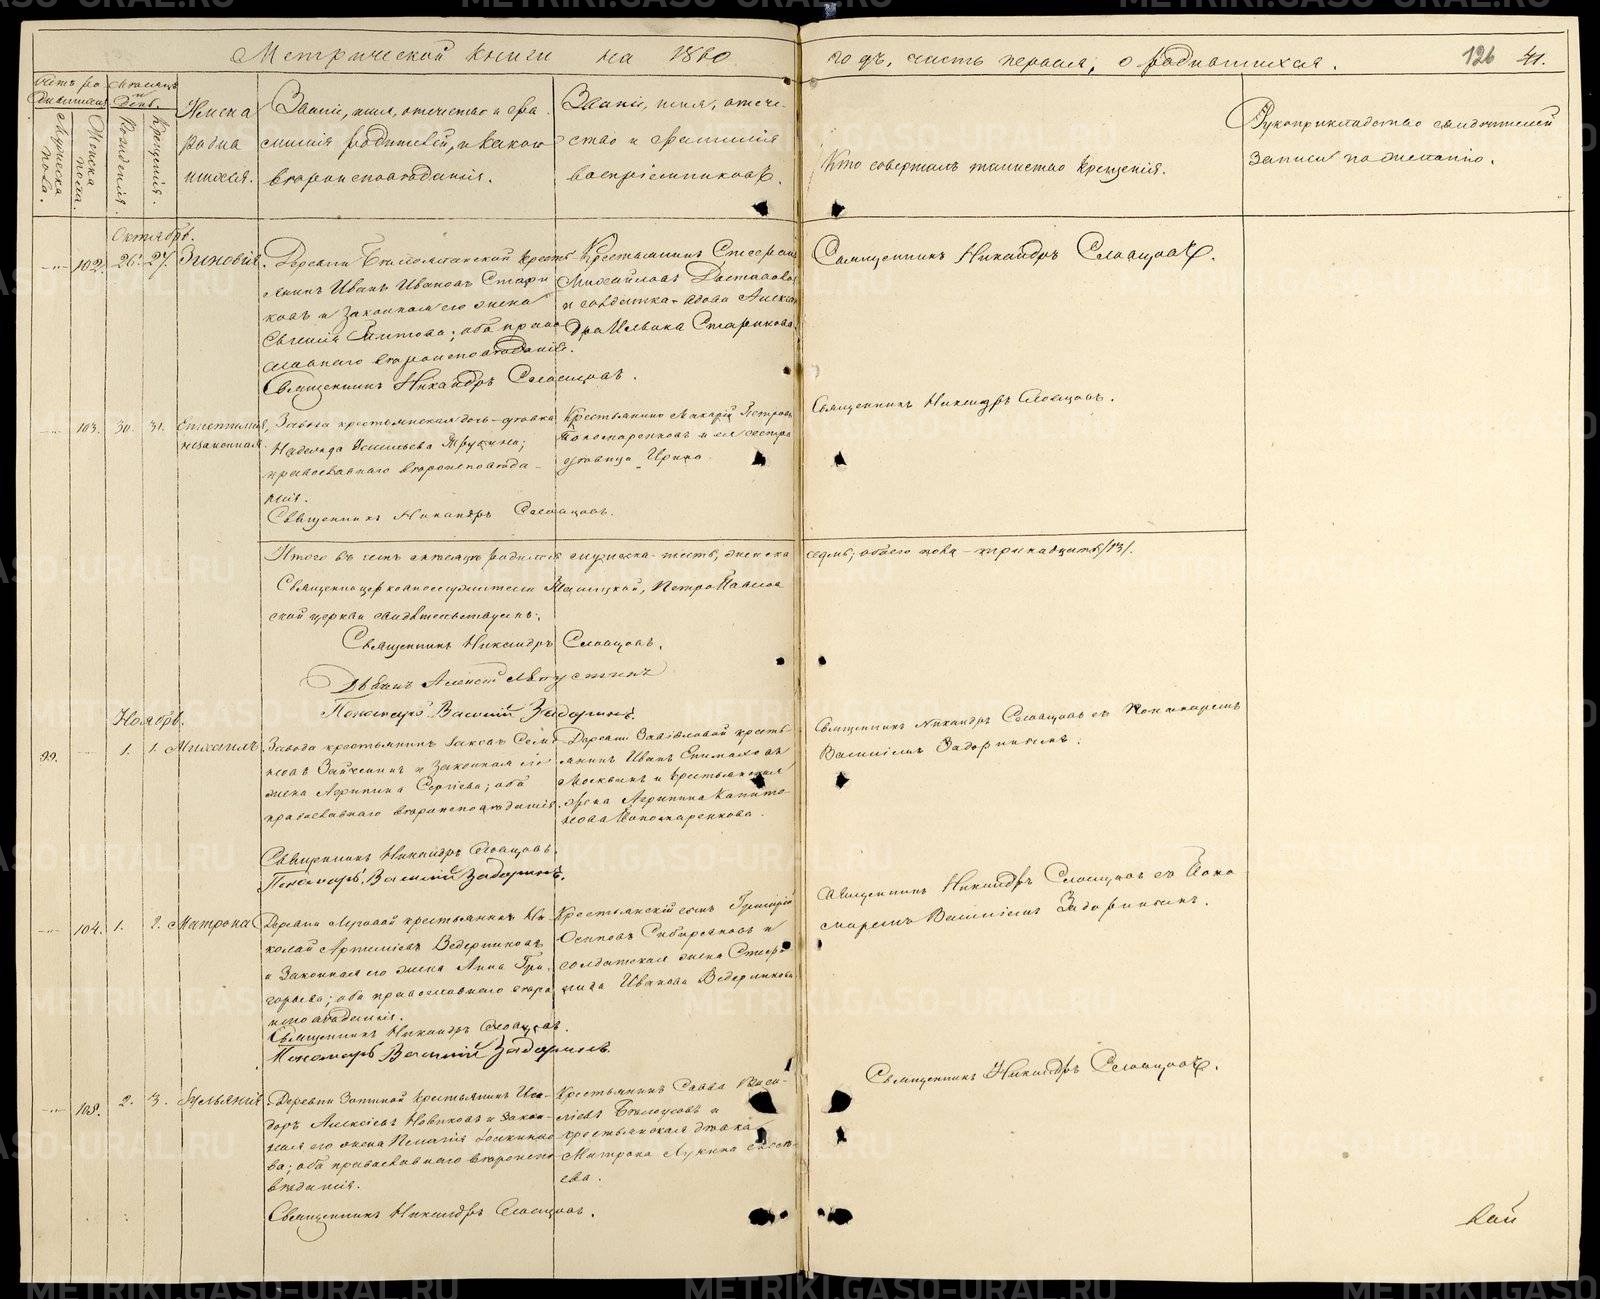 Метрической книги на 1880
годъ, часть первая, о родившихся.
126 41.
Счетъ ро
дившихся
Мужеска
пола.
Женска
пола.
Месяцъ
и
День.
Рожденія.
Крещенія.
Имена
родив
шихся.
Званіе, имя, отчество и фа
милія родителей, и какого
вѣроисповѣданія.
Званіе, имя, отче-
ство и фамилія
воспріемниковъ.
Кто совершалъ таинство крещенія.
Рукоприкладство свидѣтелей
записи по желанію.
Октябрь.
102. 26. 27. Зиновія.
Деревни крестъ
янинъ Иванъ Ивановъ Стари
ковъ и законная его жена
Евгенія Титова; оба право
славнаго вѣроисповѣданія.
Священникъ Никандръ Словцовъ.
Крестьянинъ Стефанъ
Михайловъ
и солдатка-вдова Алексан
дра Ильина Старикова.
Священникъ Никандръ Словцовъ.
103. 30. 31.
незаконная.
Завода крестьянская дочь-дѣвка
Надежда Васильева
православнаго вѣроисповѣда-
нія.
Священникъ Никандръ Словцовъ.
Крестьянинъ Захарій Петровъ
Пономаренковъ и его сестра
дѣвица Ирина.
Священникъ Никандръ Словцовъ.
Итого въ семъ октябрѣ родилось мужеска-шесть, женска
седмь; обоего пола-тринадцать /13/.
Священноцерковнослужители Петро Павлов
ской церкви свидѣтельствуемъ:
Священникъ Никандръ Словцовъ.
Дьяконъ Алексѣй
Пономарь Василій Задоринъ.
Ноябрь.
99. 1. 1. Михаилъ.
Завода крестьянинъ Яковъ Семе
новъ и законная его
жена Агрипина Сергіева; оба
православнаго вѣроисповѣданія.
Священникъ Никандръ Словцовъ.
Пономарь Василій Задоринъ.
Деревни крестъ-
янинъ Иванъ Епимаховъ
Москвинъ и крестьянская
жена Агрипина Капито-
нова Пономаренкова.
Священникъ Никандръ Словцовъ съ Пономаремъ
Василіемъ Задоринымъ.
104. 1. 2. Матрона
Деревни Луговой крестьянинъ Ни
колай Артеміевъ Ведерниковъ
и законная его жена Анна Гри-
горьева; оба православнаго вѣро
исповѣданія.
Священникъ Никандръ Словцовъ.
Пономарь Василій Задоринъ.
Крестьянскій сынъ Григорій
Осиповъ Сибиряковъ и
солдатская жена Стефа
нида Иванова Ведерникова
Священникъ Никандръ Словцовъ съ Поно
маремъ Василіемъ Задоринымъ.
105. 2. 3. Іульянія
Деревни крестьянинъ Иси-
доръ Алексіевъ Новиковъ и закон-
ная его жена Пелагія
ва; оба православнаго вѣроиспо
вѣданія.
Священникъ Никандръ Словцовъ.
Крестьянинъ Савва Васи-
ліевъ Бѣлоусовъ и
крестьянская дѣвка
Матрона Лукина
ева.
Священникъ Никандръ Словцовъ.